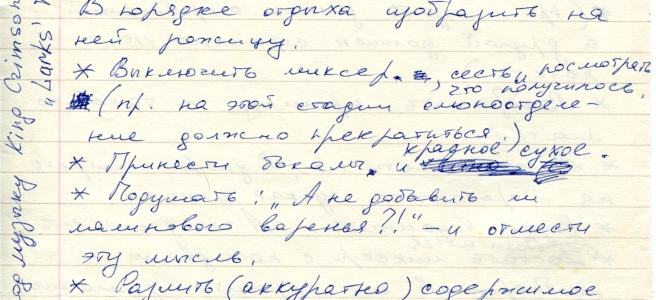 В порядке отдыха изобразить на
ней рожицу.
* Выключить миксер, сесть и посмотреть, что получилось.
(пр. на этой стадии слюноотделе-
ние должно прекратиться.)
* Принести бокалы и красное сухое.
* Подумать: „А не добавить ли
малинового варенья?!" – и отмести
эту мысль.
* Разлить (аккуратно) содержимое
музыку King Crimson
„Larks'